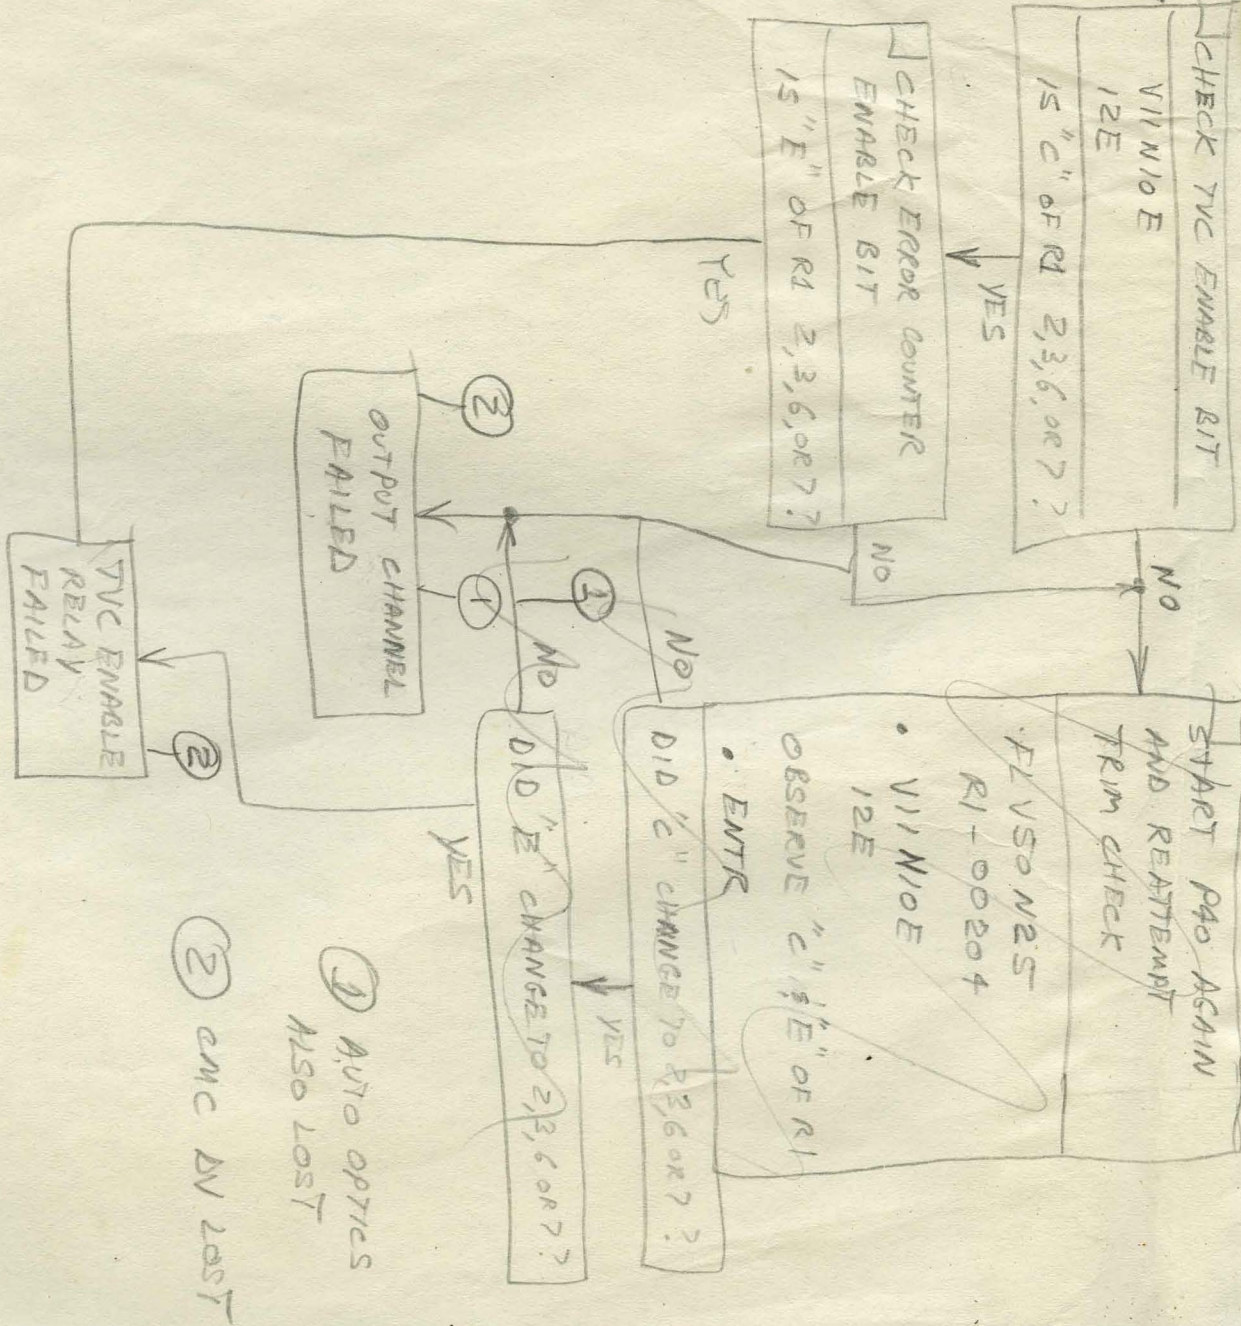 CHECK TVC ENABLE BIT
V11N10E
12E
IS "C" OF R1 2,3,6,OR 7?
YES
NO
CHECK ERROR COUNTER
ENABLE BIT
IS "E" OF R1 2,3,6,OR 7?
NO
YES
START P40 AGAIN
AND REATTEMPT
TRIM CHECK
• FL V50 N25
R1-00204
• V11N10E
12E
OBSERVE "C" & "E" OF R1
• ENTR
DID "C" CHANGE TO 2,3,6 OR 7?
NO
YES
1
DID "E" CHANGE TO 2,3,6 OR 7?
NO
YES
2
1
OUTPUT CHANNEL
FAILED
2
TVC ENABLE
RELAY
FAILED
1 AUTO OPTICS
ALSO LOST
2 CMC ΔV LOST